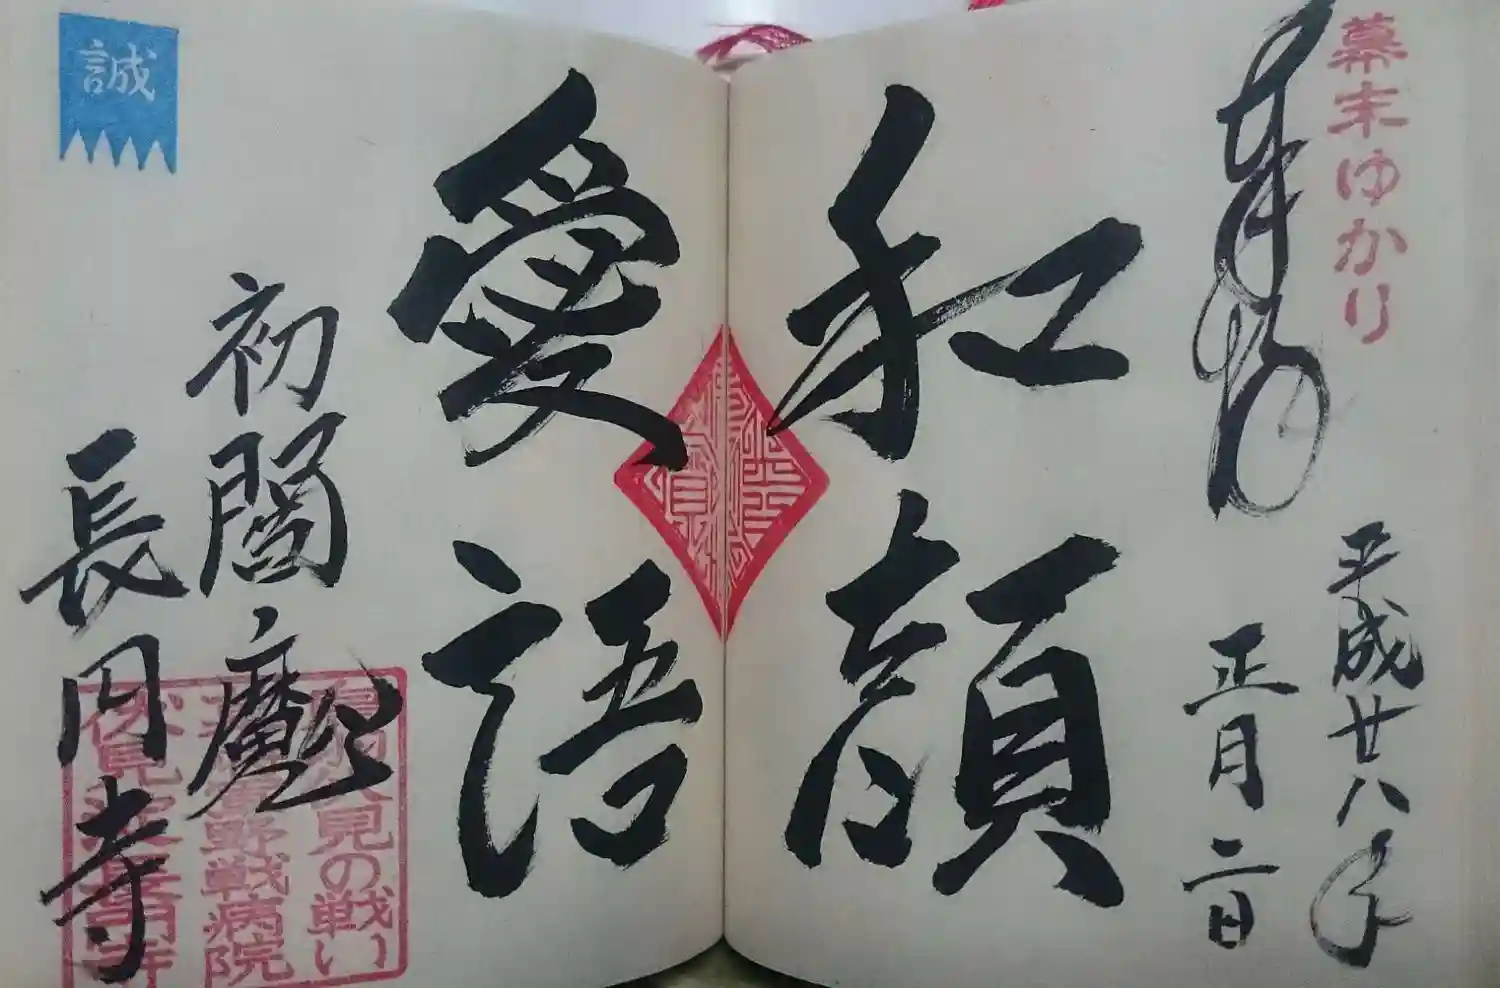 幕末ゆかり
奉拝
平成廿八年
正月二日
和顔
愛語
初閻魔
長円寺
誠
伏見の戦い
野戦病院